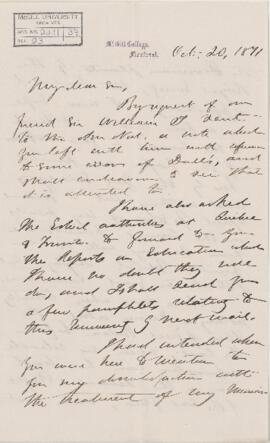 McGILL UNIVERSITY
ARCHIVES
ACC. NO. 2211 37
REF. 23
McGill College,
Montreal.
Oct: 20, 1871
My dear Sir,
By request of our
friend Sir William I sent
to the Am Nat. a note which
you left with him with reference
to some errors of Dall's, and
shall endeavour to see that
it is attended to
I have also asked
the School authorities at Quebec
& Toronto to forward to you
the Reports on Education which
I have no doubt they will
do, and I shall send you
a few pamphlets relating to
this University by next mail.
I had intended when
you were here to mention to
you my dissatisfaction with
the treatment of my Memoir